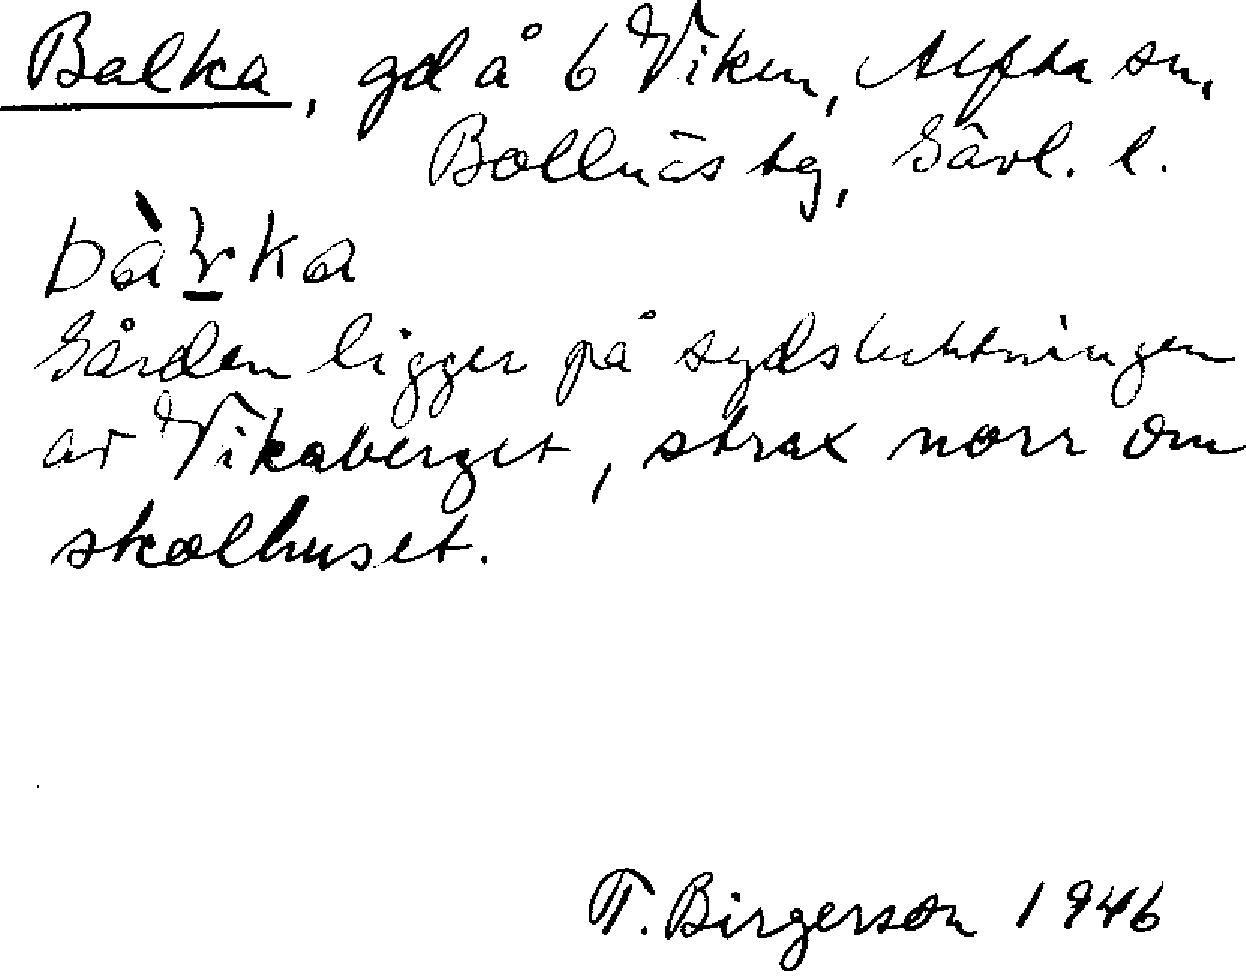 Balka, gd å 6 Viken, Alfta sn,
Bollnäs tg, Gävl. l.
Gården ligger på sydsluttningen
av Vikaberget, strax norr om
skolhuset.
T. Birgerson 1946